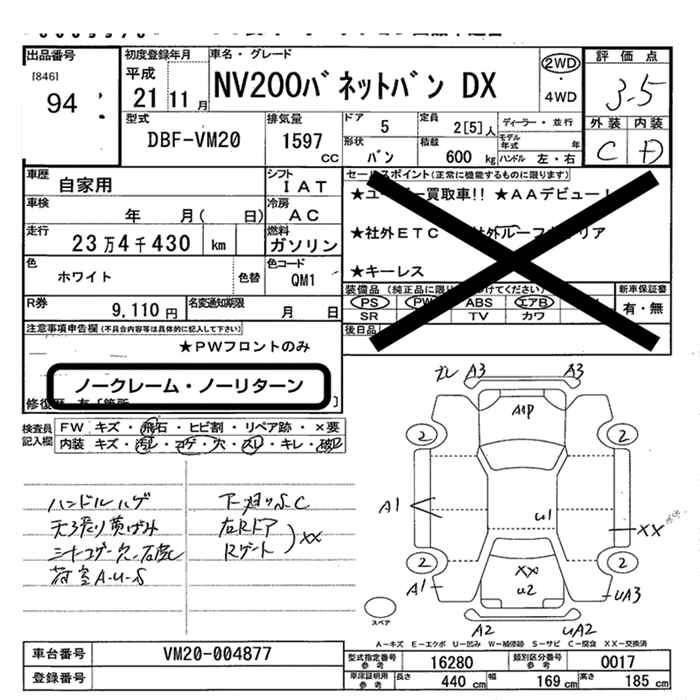 出品番号
[846]
94
初度登録年月
平成
21 11 月
車名・グレード
NV200バネットバン DX
2WD
・
4WD
評価点
3.5
外装 内装
C D
型式
DBF-VM20
排気量
1597 cc
ドア
5
形状
バン
定員
2[5]人
積載
600 kg
ディーラー・並行
モデル年式 年
ハンドル 左・右
車歴
自家用
シフト
IAT
車検
年 月( 日)
冷房
AC
走行
23万4千430 km
燃料
ガソリン
色
ホワイト
色替
色コード
QM1
R券
9,110 円
名変通知期限
月 日
セールスポイント(正常に機能するものに限ります)
買取車!! ★AAデビュー!
★社外ETC
★キーレス
装備品(純正品に限り
PS PW ABS エアB
SR TV カワ
後日品
新車保証書
有・無
注意事項申告欄(不具合内容等は具体的に記入して下さい)
★PWフロントのみ
ノークレーム・ノーリターン
検査員記入欄
FW キズ・飛石・ヒビ割・リペア跡・×要
内装 キズ・汚レ・コゲ・穴・スレ・キレ・破レ
ハンドルハゲ
荷室A・U・S
左Rドア
Rゲート
XX
ガレ A3 A3
A1P
2 2
A1
U1
XX
2 2
A1
XX
U2
UA3
A2 UA2
スペア
A-キズ E-エクボ U-凹み W-補修跡 S-サビ C-腐食 XX-交換済
車台番号
VM20-004877
登録番号
型式指定番号 参考
16280
類別区分番号 参考
0017
車庫証明用 参考
長さ 440 cm
幅 169 cm
高さ 185 cm